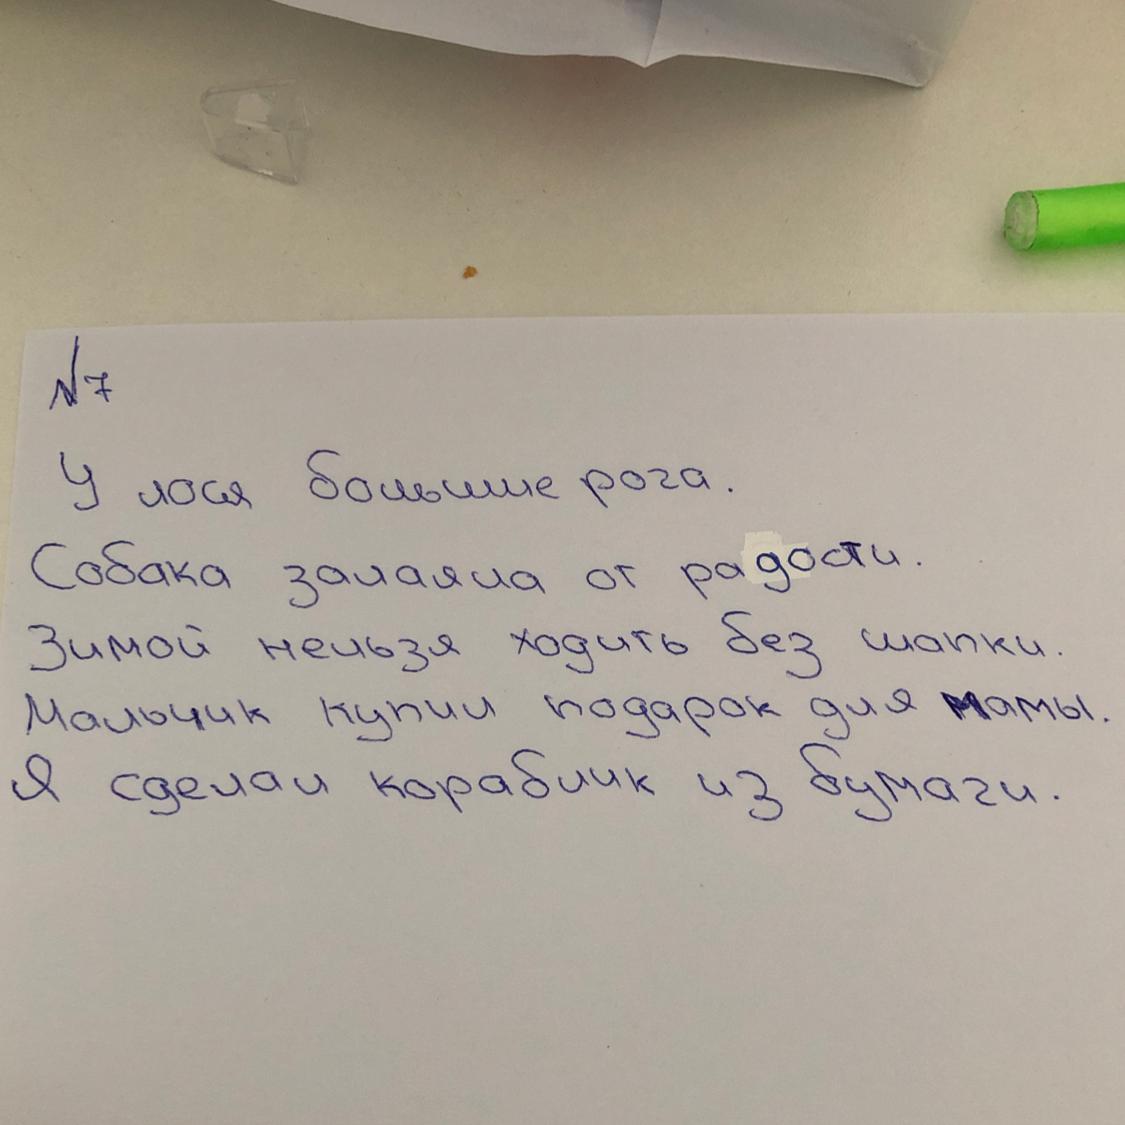 №7
У лося большие рога.
Собака залаяла от радости.
Зимой нельзя ходить без шапки.
Мальчик купил подарок для мамы.
Я сделал кораблик из бумаги.